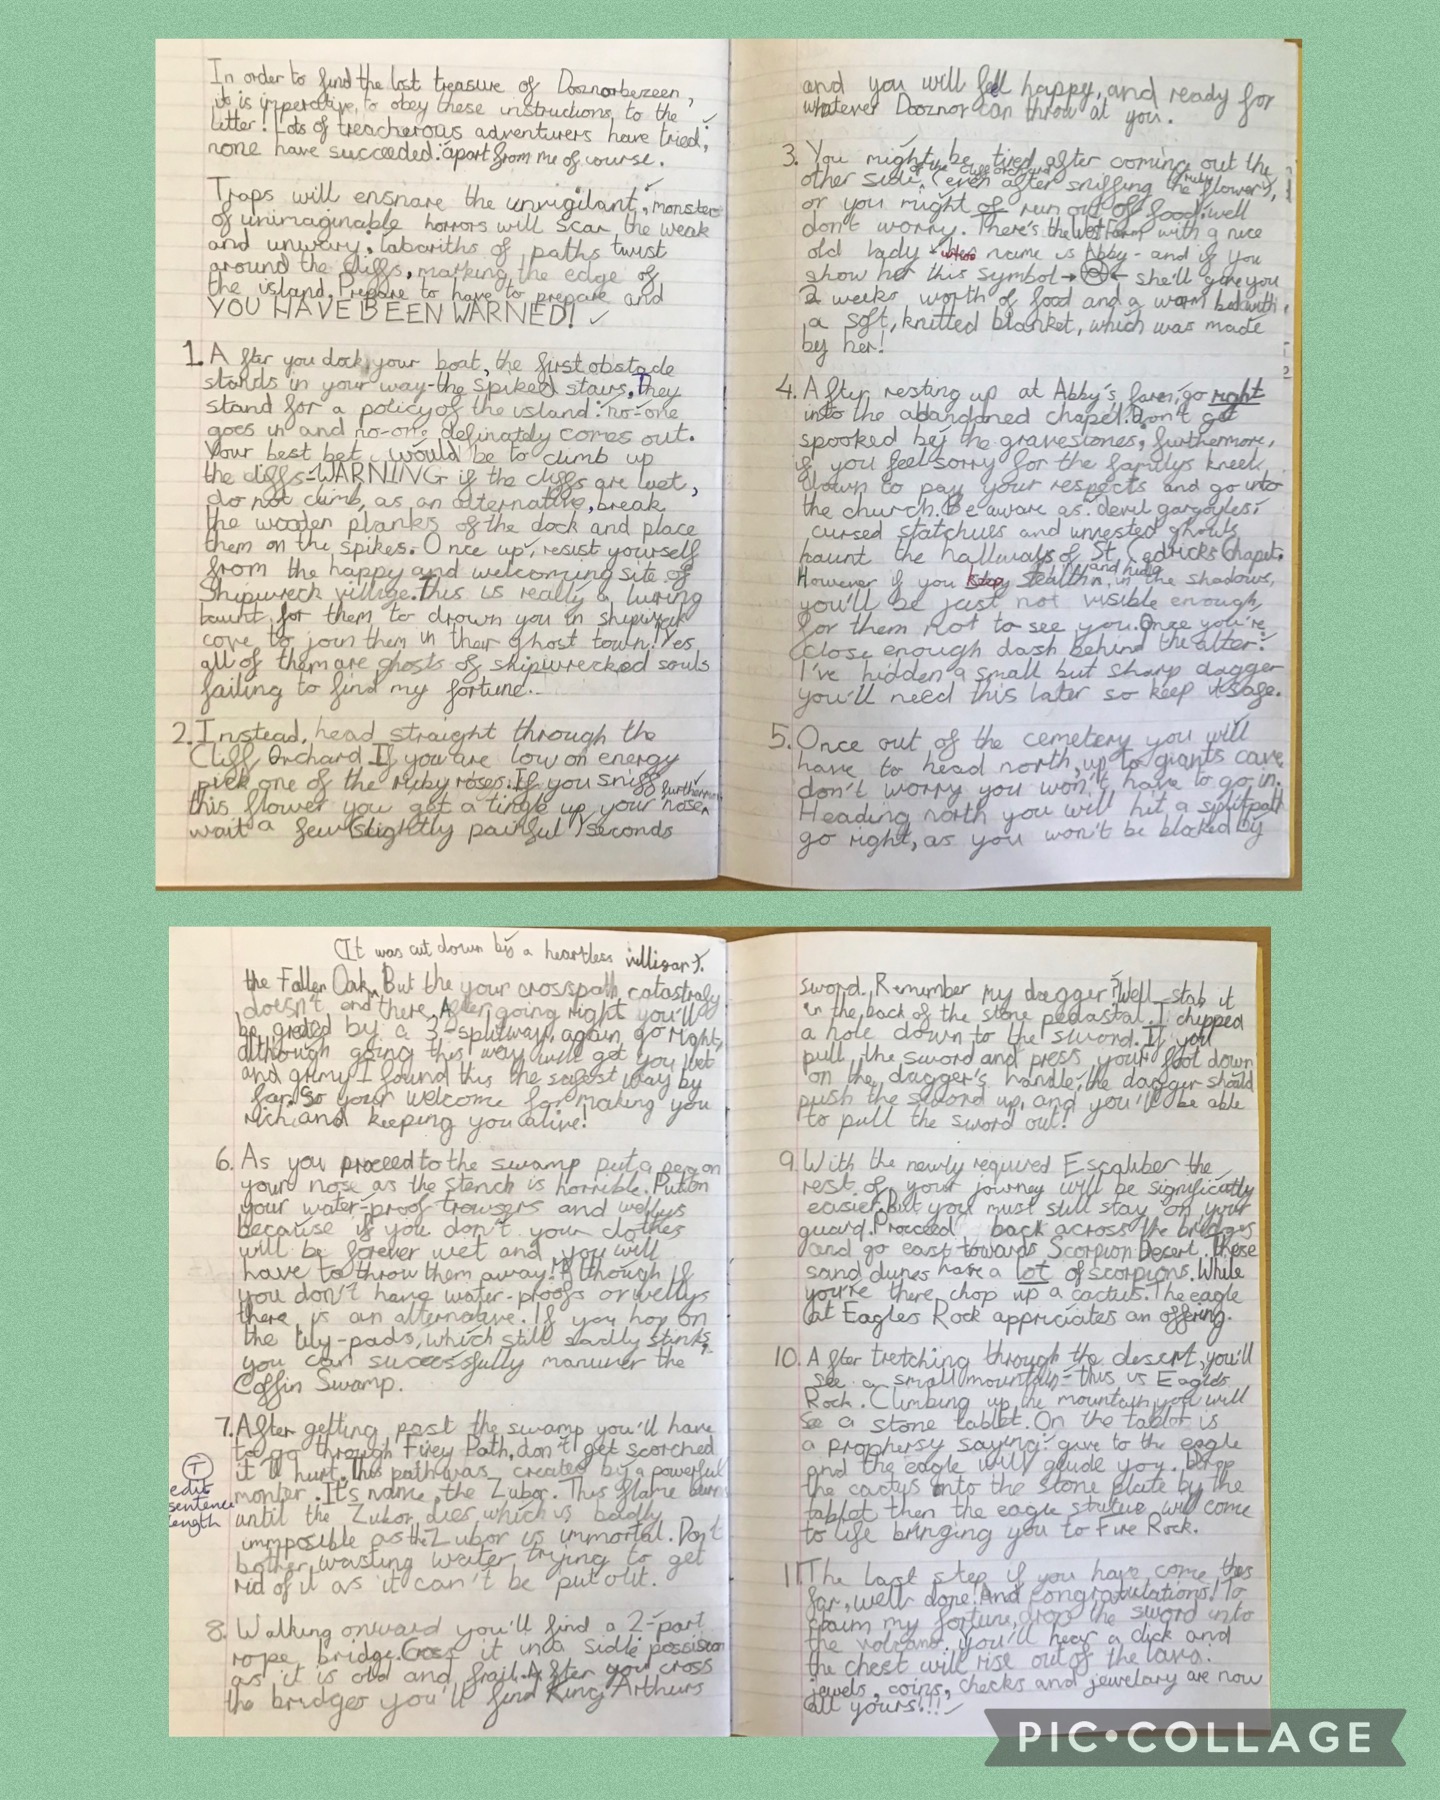 In order to find the lost treasure of Dooznorbezeen,
it is imperative, to obey these instructions to the
litter! Lots of treacherous adventurers have tried;
none have succeeded: apart from me of course.
Traps will ensnare the unvigilant; monsters
of unimaginable horrors will scar the weak
and unwary; labariths of paths twist
around the cliffs, marking the edge of
the island. Prepare to have to prepare and
YOU HAVE BEEN WARNED!
1. After you dock your boat, the first obstacle
stands in your way-the spiked stairs. They
stand for a policy of the island: no-one
goes in and no-one definately comes out.
Your best bet would be to climb up
the cliffs-WARNING if the cliffs are wet,
do not climb, as an alternative, break
the wooden planks of the dock and place
them on the spikes. Once up, resist yourself
from the happy and welcoming site of
Shipwreck village. This is really a luring
taunt, for them to drown you in shipwreck
cove to join them in their ghost town! Yes
all of them are ghosts of shipwrecked souls
failing to find my fortune...
2. Instead, head straight through the
Cliff Orchard. If you are low on energy
pick one of the ruby roses. If you sniff
this flower you get a tingle up your nose, furthermore
wait a few (slightly painful) seconds
and you will feel happy, and ready for
whatever Dooznor can throw at you.
3. You might be tired after coming out the
other side, of the cliff orchard (even after sniffing the ruby flower),
or you might of run out of food; well
don't worry. There's the Farm with a nice
old lady - name is Abby - and if you
show her this symbol → ← she'll give you
2 weeks worth of food and a warm bed with
a soft, knitted blanket, which was made
by her!
4. After resting up at Abby's farm, go right
into the abandoned chapel. Don't get
spooked by the gravestones, furthermore,
if you feel sorry for the familys kneel
down to pay your respects and go into
the church. Be aware as: devil gargoyles;
cursed statchues and unrested ghouls
haunt the hallways of St. Cedricks Chapel.
However if you keep stealthy and hide in the shadows,
you'll be just not visible enough,
for them not to see you. Once you're
close enough dash behind the alter:
I've hidden a small but sharp dagger
you'll need this later so keep it safe.
5. Once out of the cemetery you will
have to head north, up to giants cave
don't worry you won't have to go in.
Heading north you will hit a split path
go right, as you won't be blocked by
(It was cut down by a heartless villigar).
the Fallen Oak. But the your crosspath catastrophy
doesn't end there. After going right you'll
be greted by a 3-splitway, again, go right,
although going this way will get you wet
and grimy I found this the safest way by
far. So your welcome for making you
rich, and keeping you alive!
6. As you proceed to the swamp put a peg on
your nose as the stench is horrible. Put on
your water-proof trowsers and wellys
because if you don't your clothes
will be forever wet and you will
have to throw them away! Although if
you don't have water-proofs or wellys
there is an alternative. If you hop on
the lily-pads, which still sadly stinks,
you can successfully manuver the
Coffin Swamp.
7. After getting past the swamp you'll have
to go through Firey Path, don't get scorched
it'll hurt. This path was created by a powerful
monter. It's name, the Zubor. This flame burns
until the Zubor dies, which is badly
immposible as the Zubor is immortal. Don't
bother wasting water trying to get
rid of it as it can't be put out.
T
edit
sentence
length
8. Walking onward you'll find a 2-part
rope bridge. Cross it in a sidle possision
as it is old and frail. After you cross
the bridges you'll find King Arthurs
sword. Remember my dagger? Well stab it
in the back of the stone pedastal. I chipped
a hole down to the sword. If you
pull the sword and press your foot down
on the dagger's handle, the dagger should
push the sword up, and you'll be able
to pull the sword out!
9. With the newly required Escaliber the
rest of your journey will be significatly
easier. But you must still stay on your
guard. Proceed back across the bridges
and go east towards Scorpion Desert. These
sand dunes have a lot of scorpions. While
you're there chop up a cactus. The eagle
at Eagles Rock appriciates an offering.
10. After tretching through the desert, you'll
see a small mountain-this is Eagles
Rock. Climbing up the mountain you will
se a stone tablet. On the tablet is
a prophersy saying: give to the eagle
and the eagle will guide you. Drop
the cactus onto the stone plate by the
tablet then the eagle statue will come
to life bringing you to Fire Rock.
11. The last step if you have come this
far, well done! And congratulations! To
claim my fortune, drop the sword into
the volcano. You'll hear a click and
the chest will rise out of the lava.
jewels, coins, checks and jewelary are now
all yours!!!
PIC•COLLAGE